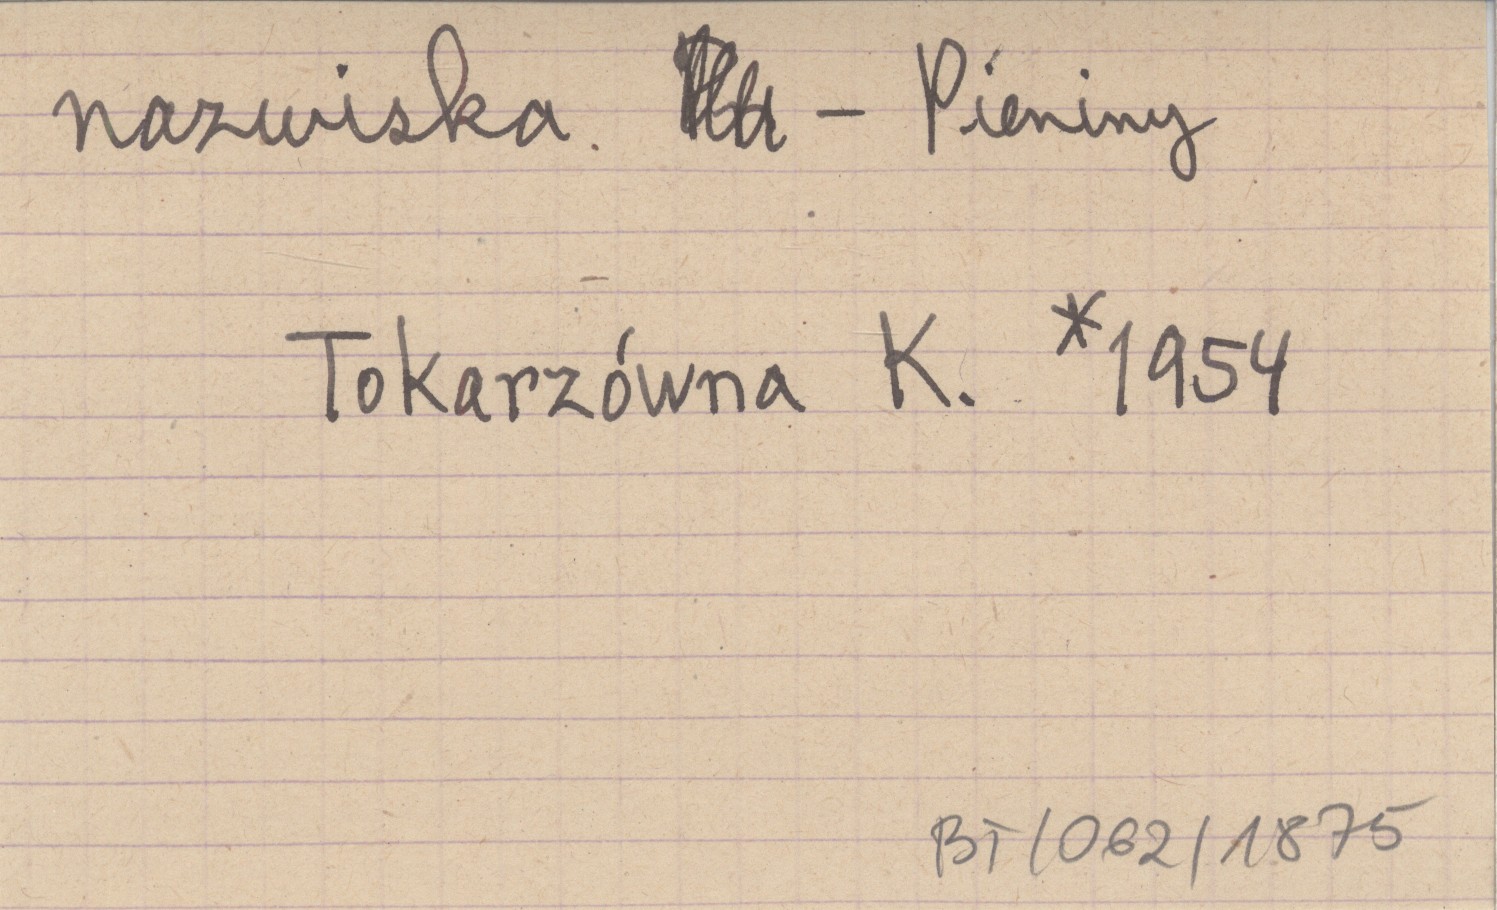 nazwiska. – Pieniny
Tokarzówna K. *1954
BT/062/1875